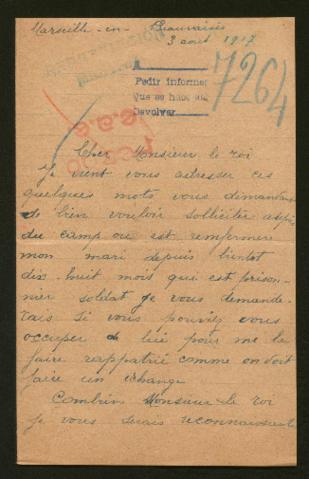 Marseille-en-Beauvaisis
3 aout 1917
7264
Pedir informes
Que se
Devolver
Cher Monsieur le roi
Je vient vous adresser ces
quelques mots vous demandant
de bien vouloir solliciter
du camp ou est renfermer
mon mari depuis bientot
dix-huit mois qui est prison-
nier soldat je vous demande-
rais si vous pouviez vous
occuper de lui pour me le
faire reappatrié comme on doit
faire un échange
Combien Monsieur le roi
je vous serais reconnaissante